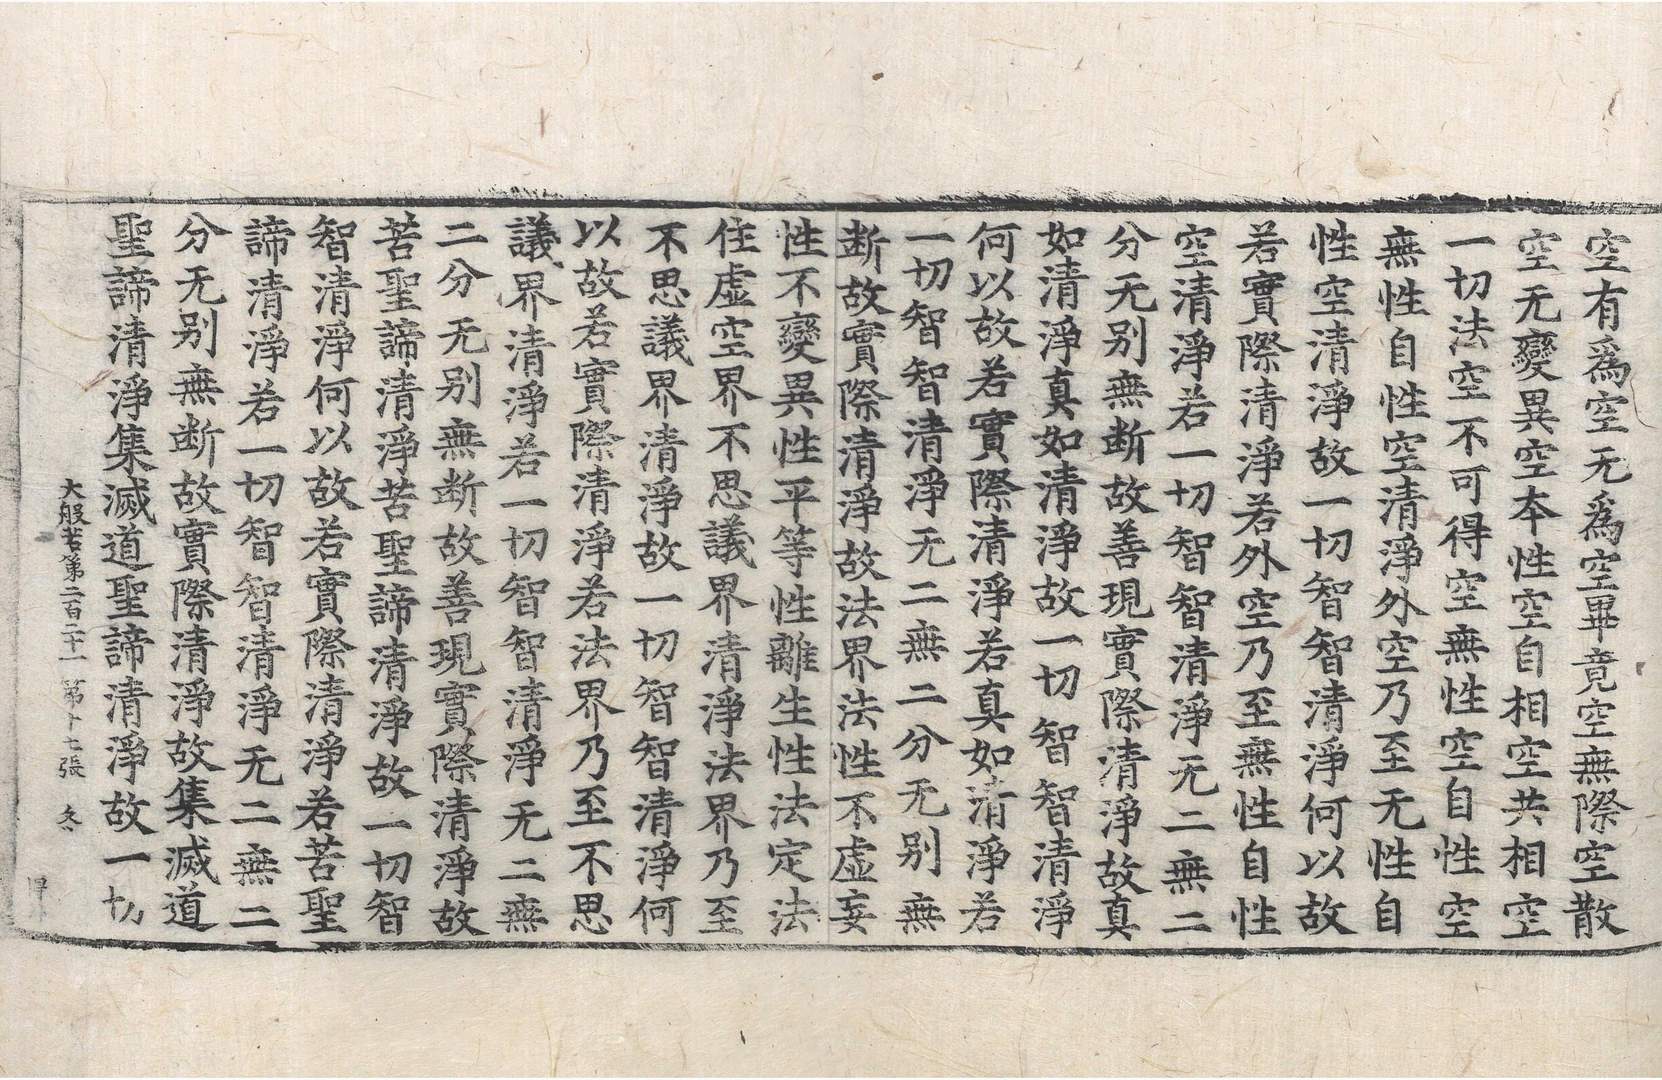 空有爲空无爲空畢竟空無際空散
空无變異空本性空自相空共相空
一切法空不可得空無性空自性空
無性自性空清淨外空乃至无性自
性空清淨故一切智智清淨何以故
若實際清淨若外空乃至無性自性
空清淨若一切智智清淨无二無二
分无别無断故善現實際清淨故真
如清淨真如清淨故一切智智清淨
何以故若實際清淨若真如清淨若
一切智智清淨无二無二分无别無
断故實際清淨故法界法性不虚妄
性不變異性平等性離生性法定法
住虚空界不思議界清淨法界乃至
不思議界清淨故一切智智清淨何
以故若實際清淨若法界乃至不思
議界清淨若一切智智清淨无二無
二分无别無断故善現實際清淨故
苦聖諦清淨苦聖諦清淨故一切智
智清淨何以故若實際清淨若苦聖
諦清淨若一切智智清淨无二無二
分无别無断故實際清淨故集滅道
聖諦清淨集滅道聖諦清淨故一切
大般若第二百二十一 第十七張 冬